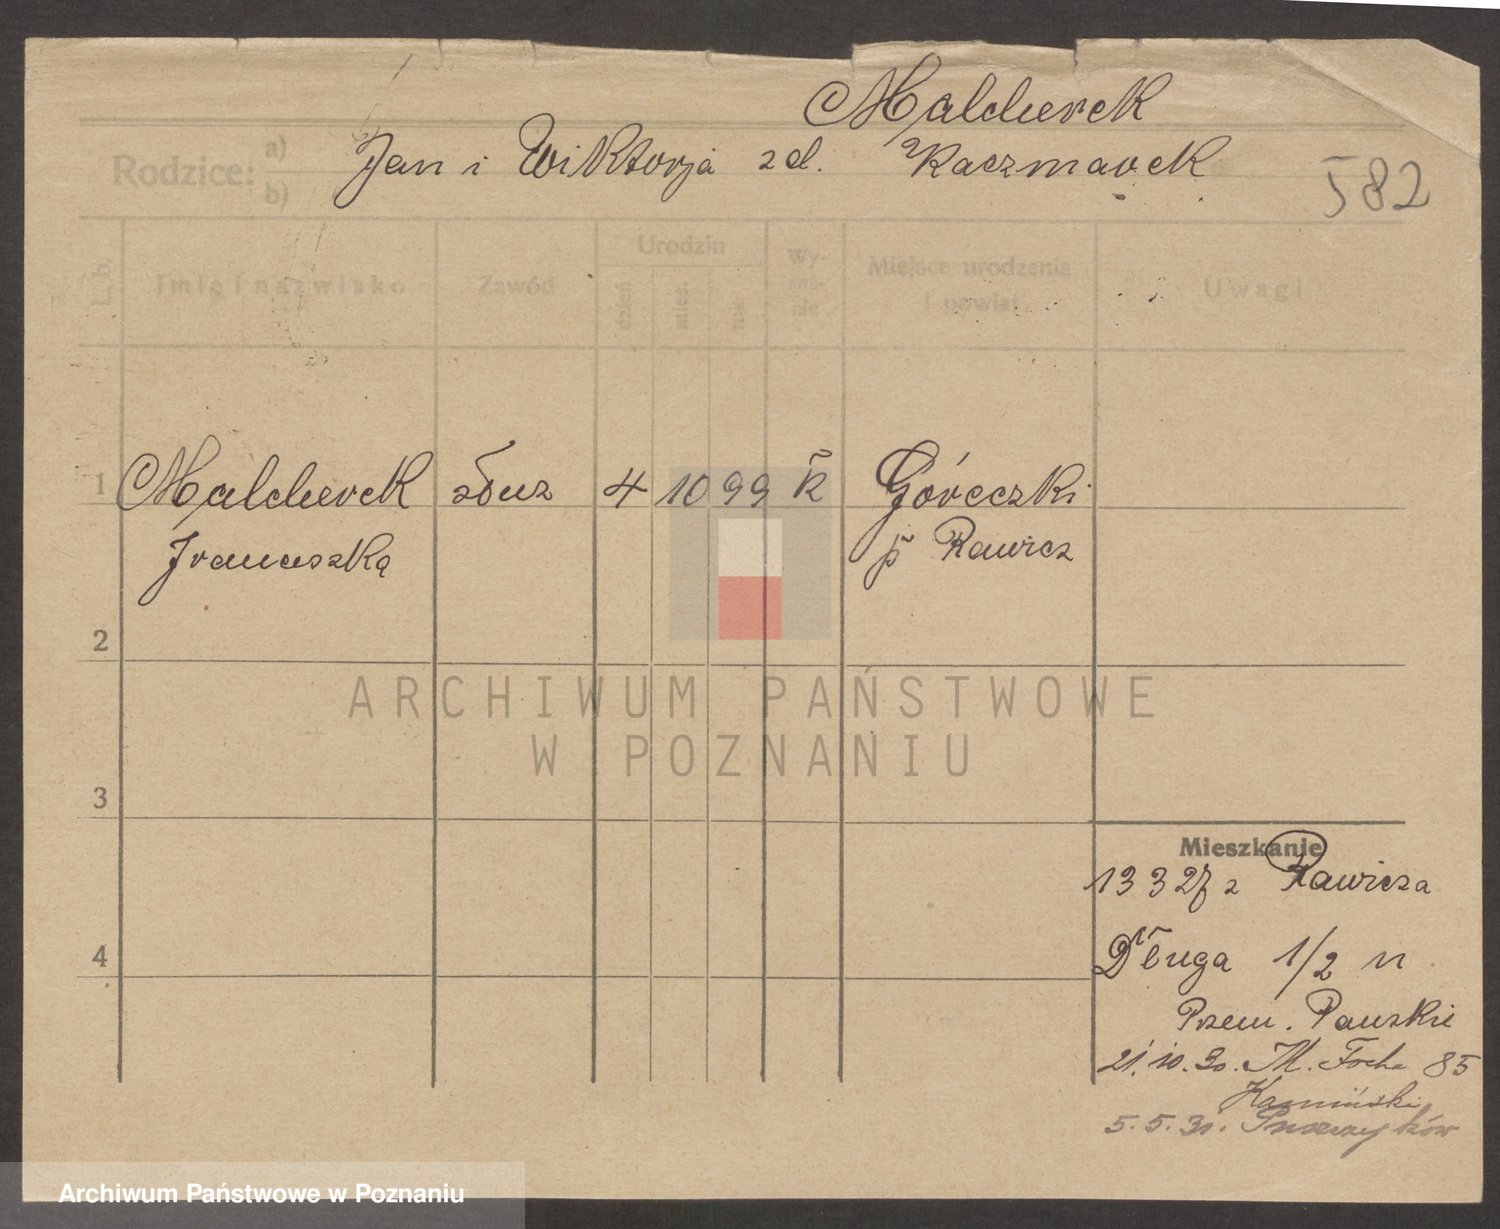 Malcherek
Rodzice: a) b) Jan i Wiktorja z d. Kaczmarek
582
L. b. Imię i nazwisko Zawód Urodzin dzień mies. rok Wy-zna-nie Miejsce urodzenia i powiat Uwagi
1 Malcherek służ 4 10 99 k Góreczki
Franciszka p Rawicz
2
ARCHIWUM PAŃSTWOWE
W POZNANIU
3
Mieszkanie
13 3 27 z Rawicza
4
Długa 1/2 n
Przem. Pauskie
21.10.30. M. Focha 85
Kamiński
5.5.31.
Archiwum Państwowe w Poznaniu